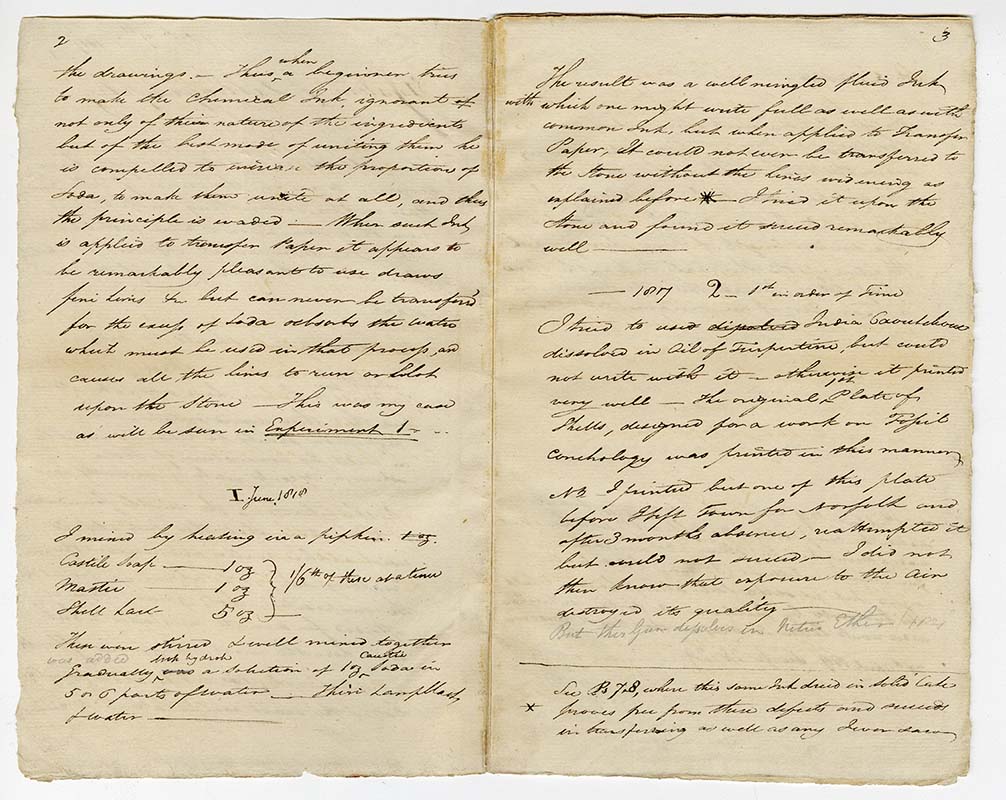 2
the drawings. — Thus when a beginner tries
to make the Chemical Ink, ignorant of
not only of their nature of the ingredients
but of the best mode of uniting them he
is compelled to increase the proportion of
Soda, to make them unite at all, and thus
the principle is evaded — When such Ink
is applied to transfer Paper it appears to
be remarkably pleasant to use draws
fine lines &c but can never be transferr'd
for the excess of Soda absorbs the water
which must be used in that process, and
causes all the lines to run or blot
upon the Stone — This was my case
as will be seen in Experiment 1 —
I. June 1818
I mixed by heating in a pipkin. 1 oz.
Castile Soap — 1 oz
Mastic — 1 oz
Shell Lack 5 oz
1/6th of these at a time
These were stirred & well mixed together
was added drop by drop Caustic
Gradually was a solution of 1 oz Soda in
5 or 6 parts of water — Then Lampblack
& water —
3
The result was a well mingled fluid Ink
with which one might write full as well as with
common Ink, but when applied to Transfer
Paper, It could not even be transferred to
the Stone without the lines widening as
explained before * — I tried it upon the
Stone and found it succeed remarkably
well —
— 1817 2 — 1st in order of Time
I tried to use dissolved India Caoutchouc
dissolved in Oil of Turpentine, but could
not write with it — otherwise it printed
very well — The original 1st Plate of
Shells, designed for a work on Fossil
conchology was printed in this manner,
NB I printed but one of this plate
before I left Town for Norfolk and
after 3 months absence, reattempted it
but could not succeed — I did not
then know that exposure to the Air
destroyed its quality —
But this Gum dissolves in Nitric Ether
See B 7.8, where this same Ink dried in solid Cake
* proves free from these defects and succeeds
in transferring as well as any I ever saw